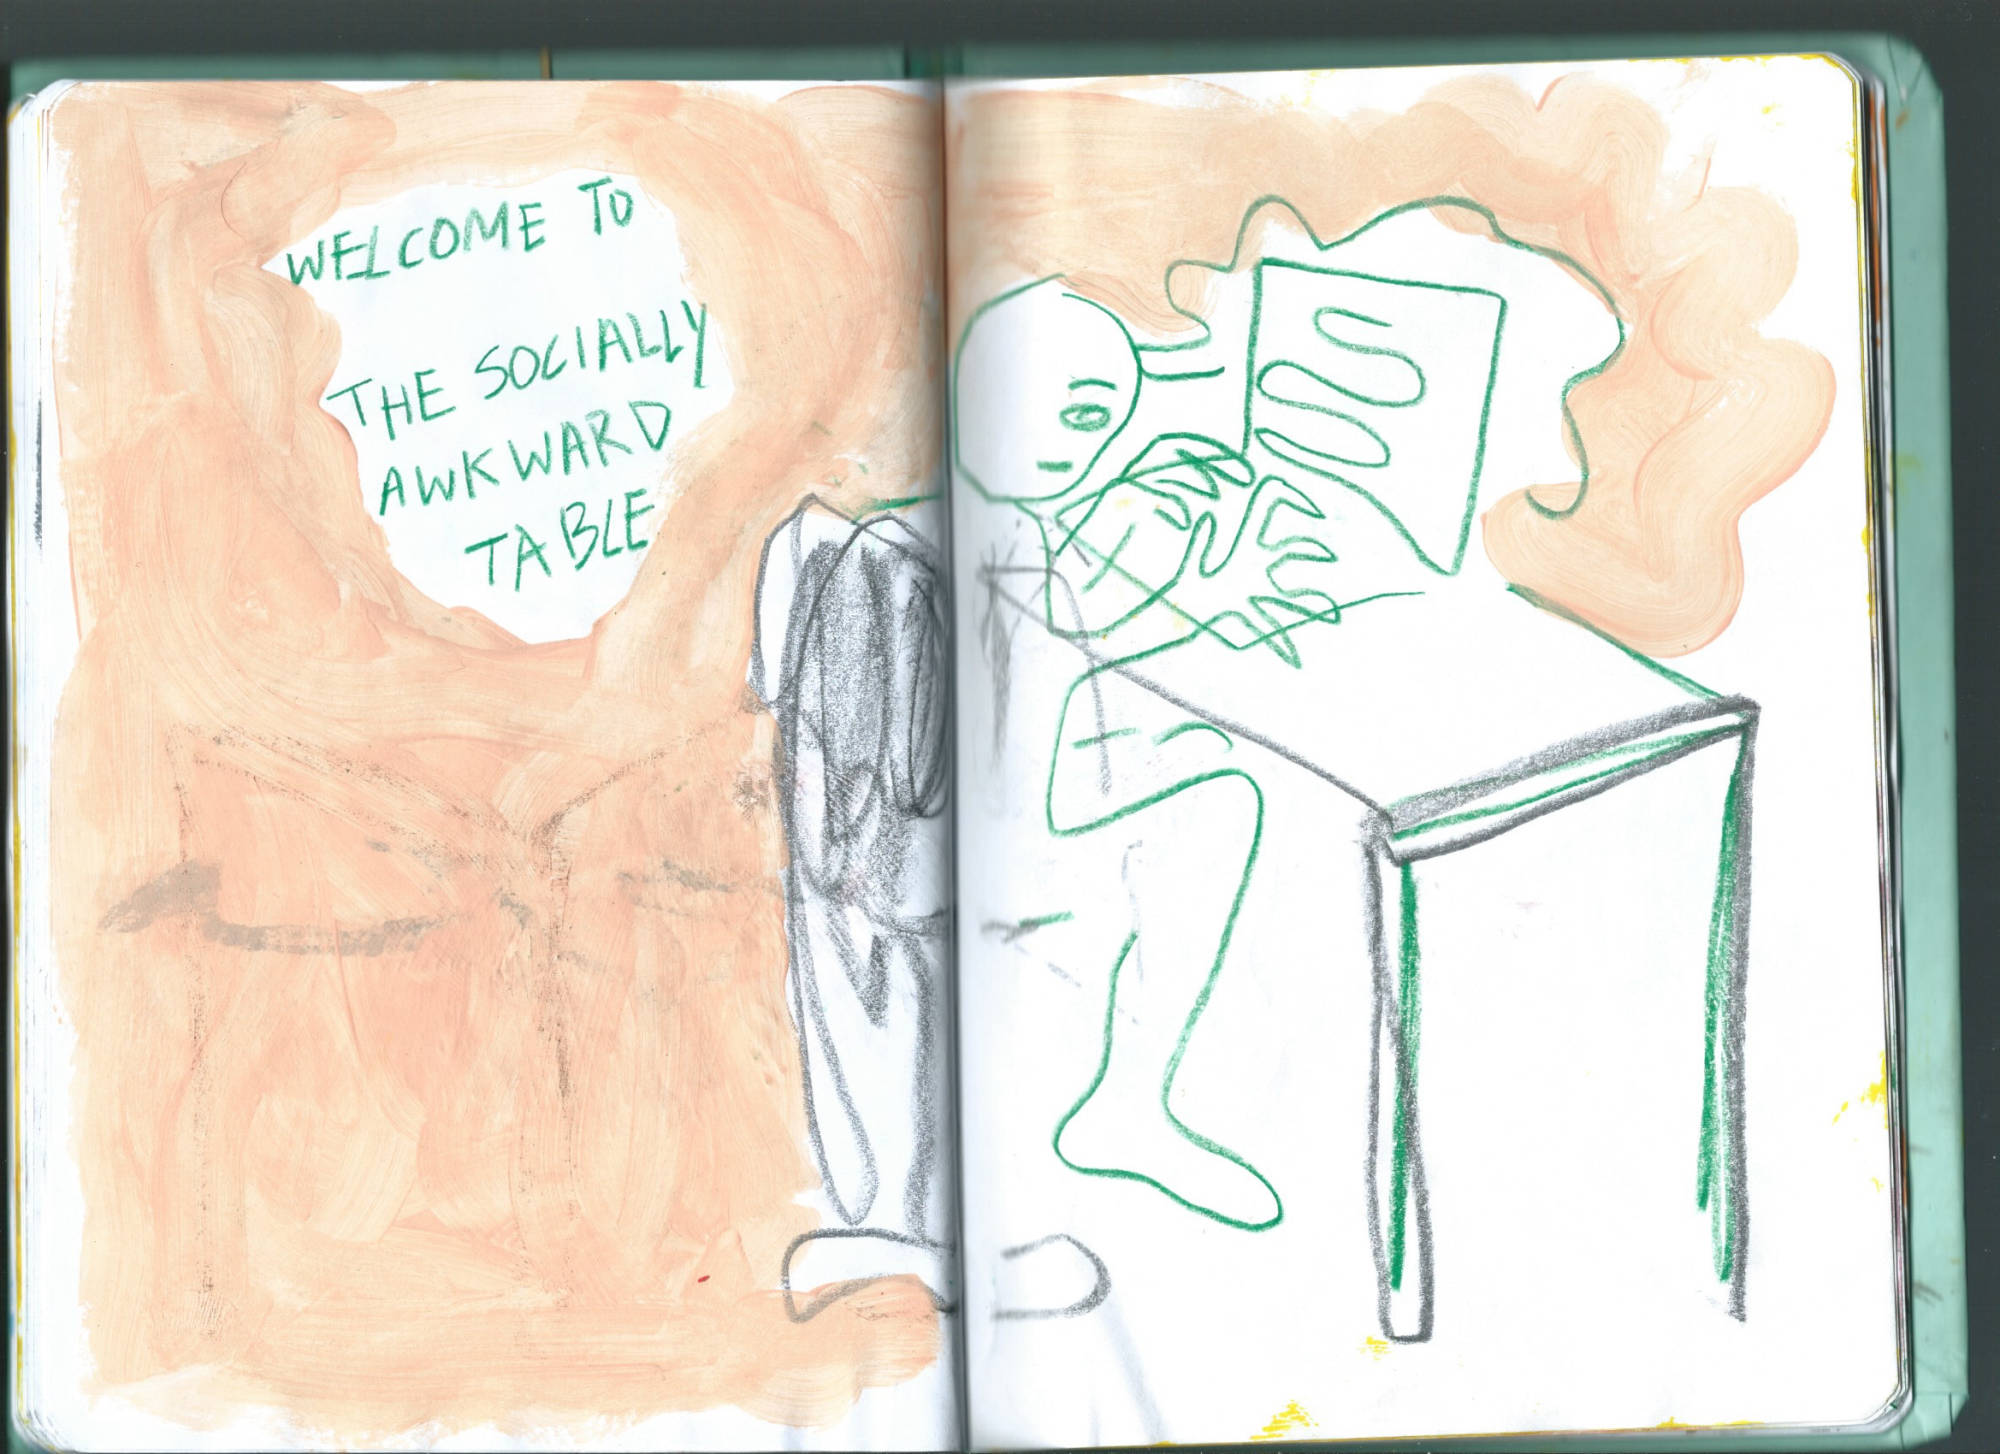 WELCOME TO
THE SOCIALLY
AWKWARD
TABLE